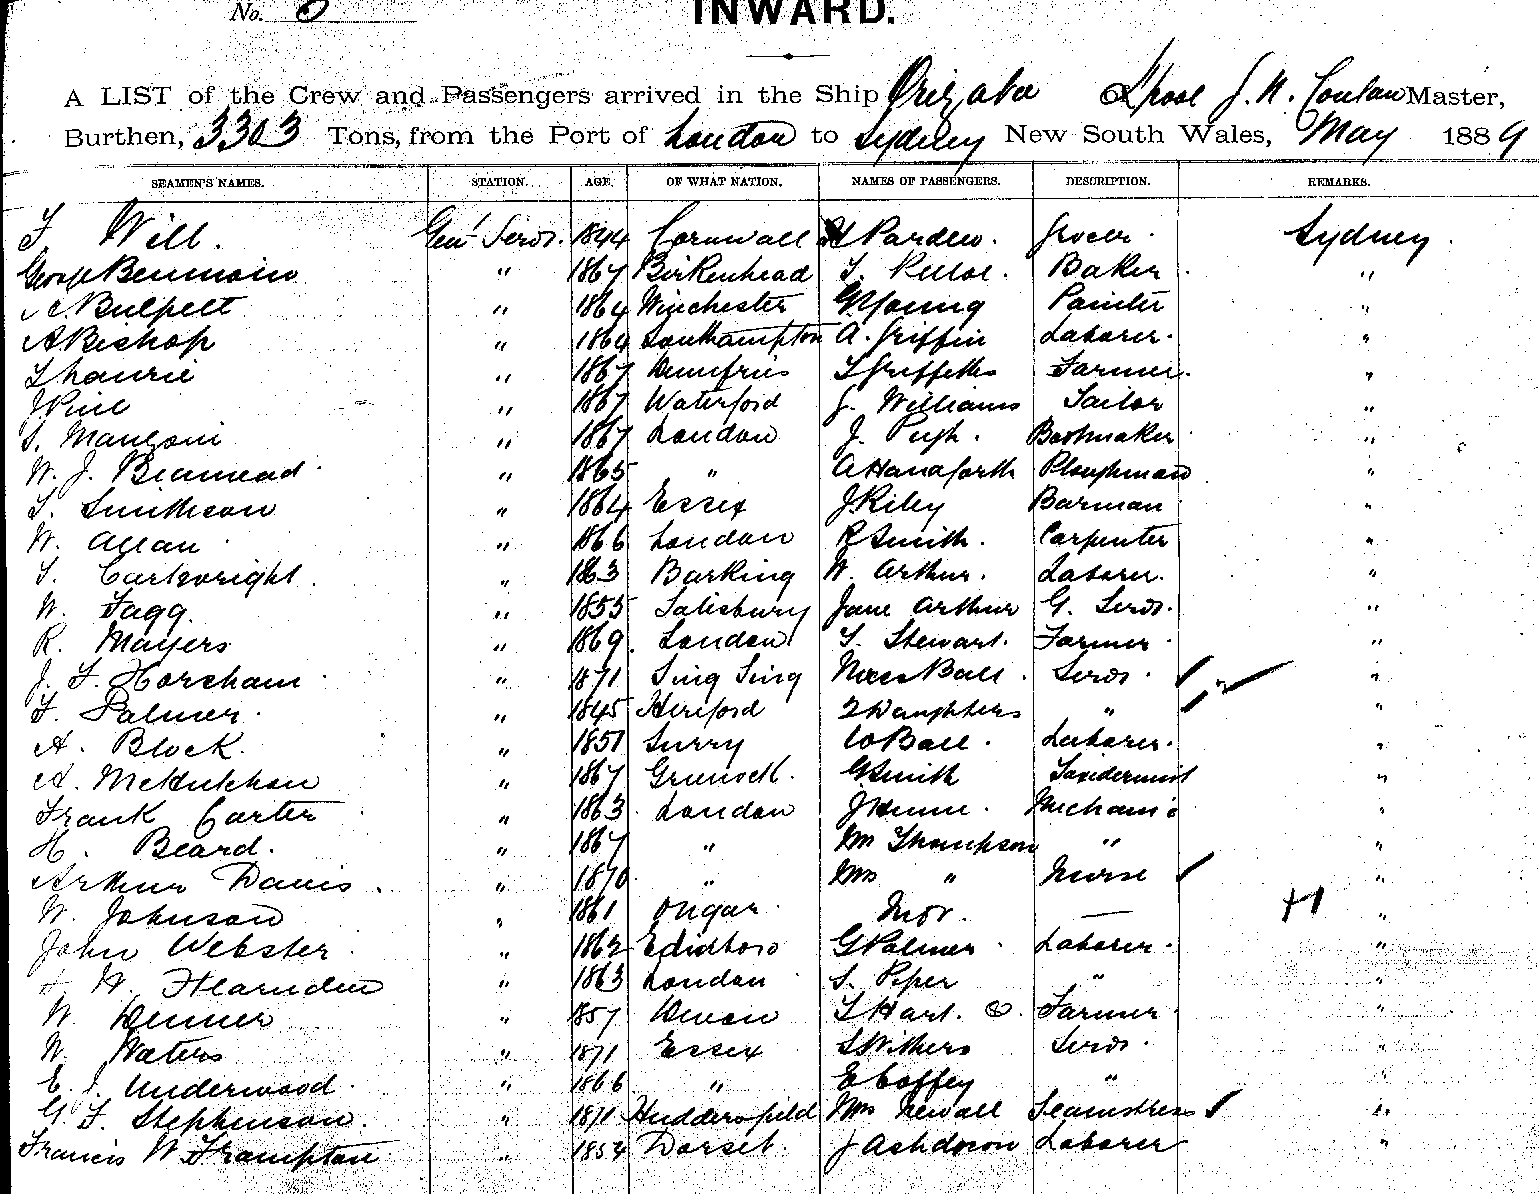 No.
INWARD.
A LIST of the Crew and Passengers arrived in the Ship Orizaba J. N. Master,
Burthen, 3303 Tons, from the Port of London to Sydney New South Wales, May 1889
SEAMEN'S NAMES. STATION. AGE. OF WHAT NATION. NAMES OF PASSENGERS. DESCRIPTION. REMARKS.
F. Will. Genl Servt. 1844 Cornwall Pardew. Grocer. Sydney.
George " 1867 Birkenhead Baker "
A Bulpett " 1864 Winchester G Young Painter "
A Bishop " 1864 Southampton A. Griffin Laborer. "
" 1867 Dumfries T Griffiths Farmer. "
" 1867 Waterford J. Williams Tailor "
" 1867 London J. Pugh. Bootmaker "
W. J. " 1865 " A Handforth Ploughman "
" 1864 Essex J Riley Barman "
W. Allan " 1866 London R Smith. Carpenter "
T. Cartwright. " 1863 Barking W. Arthur. Laborer. "
W. Fagg. " 1855 Salisbury Jane Arthur G. Servt. "
R. Mayers " 1869. London T. Stewart. Farmer "
J. F. Horsham " 1871 Sing Sing Ball. Servt. "
F. Palmer. " 1845 Hereford 2 Daughters " "
A. Block. " 1851 Surry W Ball. Laborer. "
A. McHutchon " 1867 Greenock. G Smith "
Frank Carter " 1863 London Mechanic "
H. Beard. " 1867 " Wm Thompson " "
Arthur Davis. " 1870 " Mrs " Nurse "
W. Johnson " 1861 Ongar Inft. — "
John Webster " 1862 Edinboro G Palmer Laborer. "
W. Hearnden " 1863 London S. Piper " "
W. Denner " 1857 Devon T Hart. Farmer "
W. Waters " 1871 Essex S Withers Servt. "
E. J. Underwood. " 1866 " E Coffey " "
G. F. Stephenson. " 1871 Huddersfield Mrs Newall Seamstress "
Francis W Frampton " 1854 Dorset. J Ashdown Laborer "